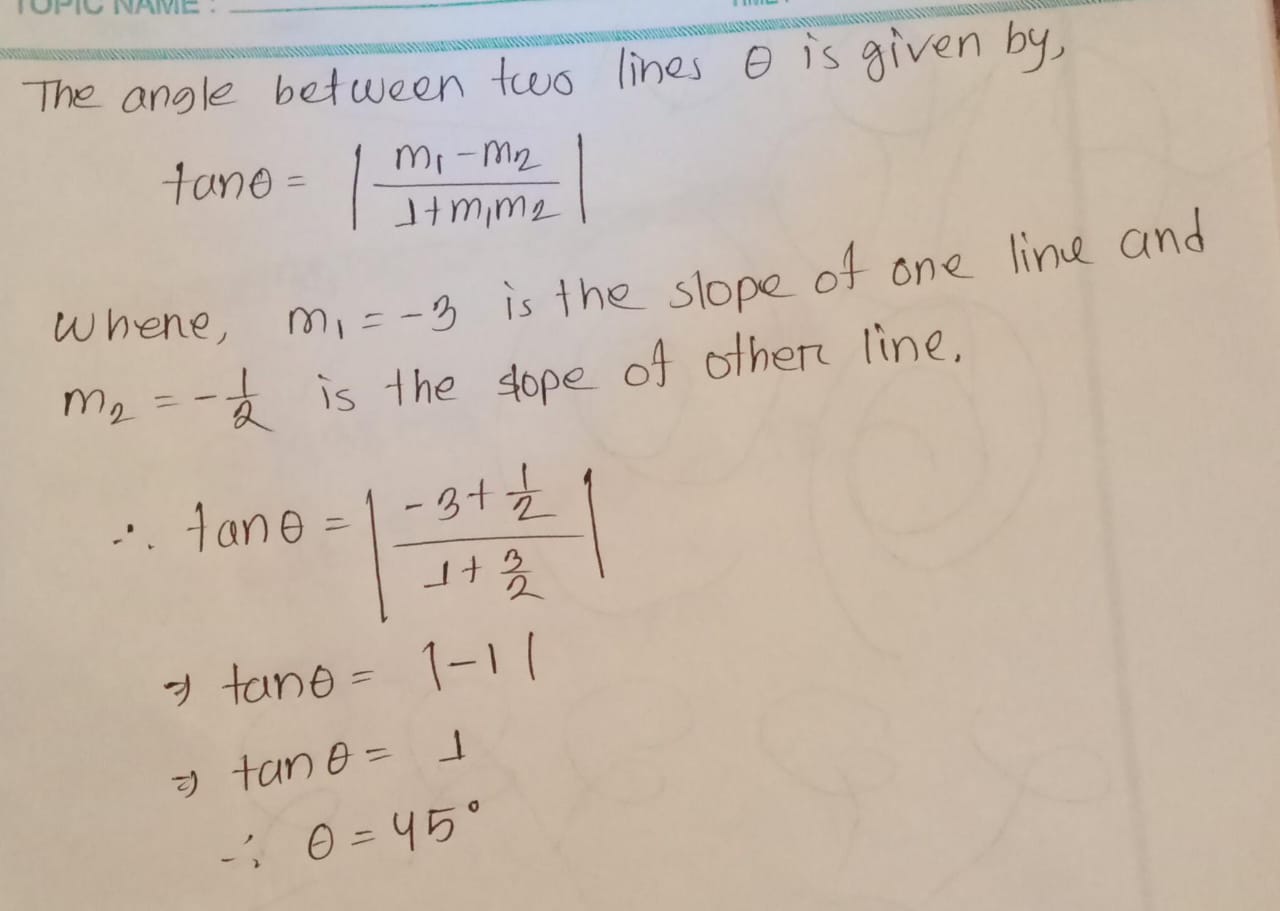 TOPIC NAME :
The angle between two lines θ is given by,
tanθ = | (m₁ - m₂) / (1 + m₁m₂) |
Where, m₁ = -3 is the slope of one line and
m₂ = -1/2 is the slope of other line.
∴ tanθ = | (-3 + 1/2) / (1 + 3/2) |
⇒ tanθ = |-1|
⇒ tanθ = 1
∴ θ = 45°